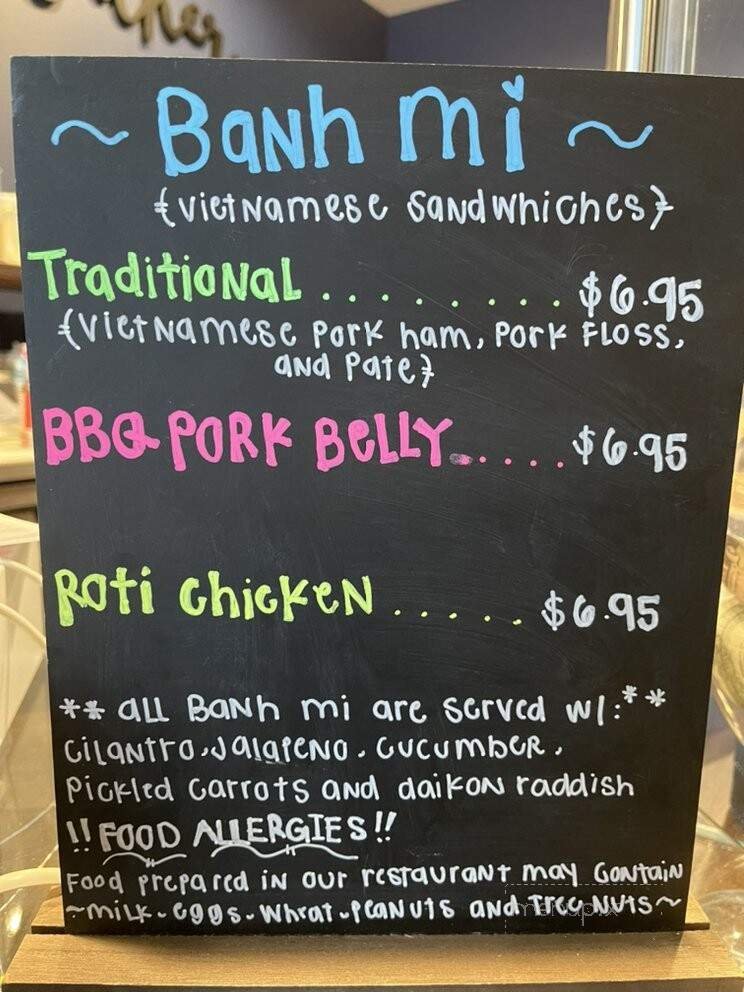 ~ Banh mi ~
{Vietnamese Sandwhiches}
Traditional ......... $6.95
{Vietnamese Pork ham, Pork Floss,
and Pate}
BBQ PORK BELLY ..... $6.95
Roti Chicken ..... $6.95
** all Banh mi are served w/: **
Cilantro, Jalapeno, Cucumber,
Pickled Carrots and daikon raddish
!! FOOD ALLERGIES !!
Food prepared in our restaurant may Contain
~milk-eggs-Wheat-peanuts and Tree Nuts~
menupix